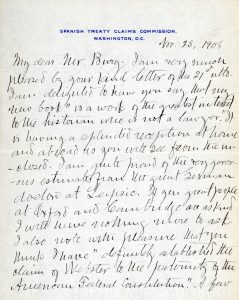 SPANISH TREATY CLAIMS COMMISSION,
WASHINGTON, D.C.
Nov. 25, 1908
My dear Mr. I am very much
pleased by your kind letter of the 21st ulto.
I am delighted to have you say that my
new book "is a work of the greatest interest
to the historian who is not a lawyer. It
is having a splendid reception at home
and abroad as you will see from the en-
closed. I am quite proud of the very gener-
ous estimate from the great German
doctors at Leipsic. If you great people
at Oxford and Cambridge are as kind
I will have nothing more to ask.
I also note with pleasure that you
think I have "definitely established the
claim of Webster to the paternity of the
American Federal Constitution." A few